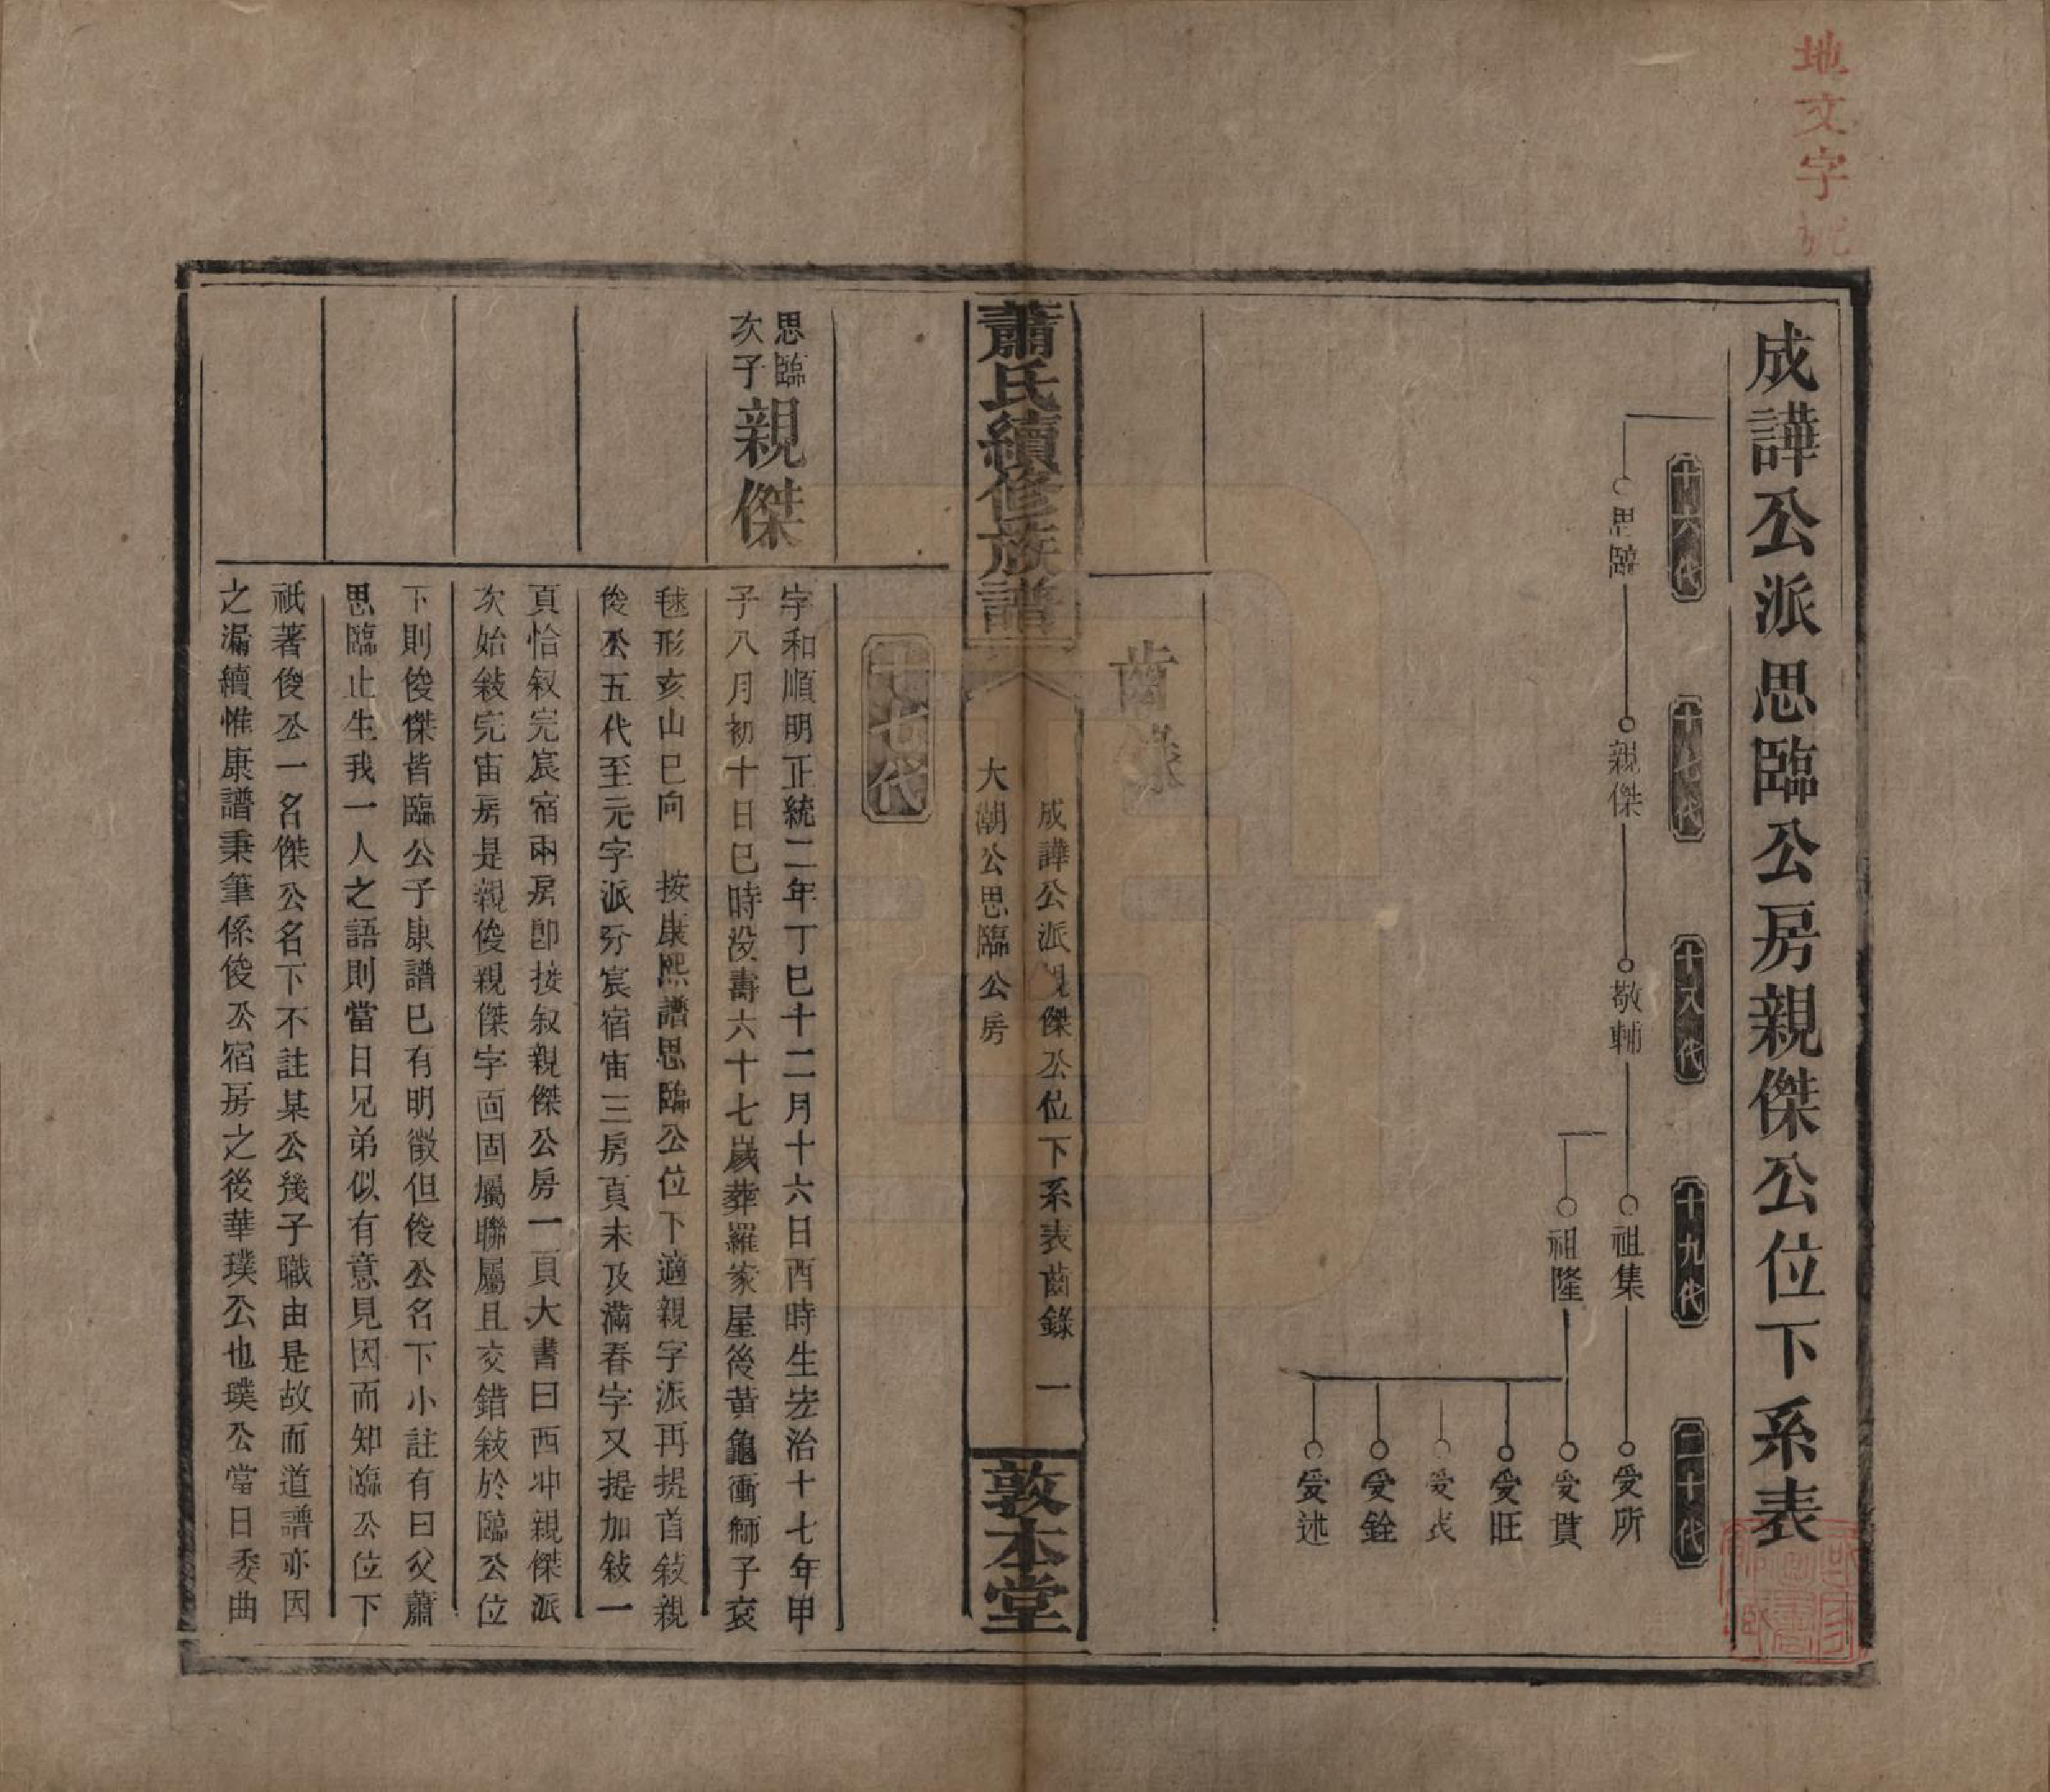 地文字號
成譁公派思臨公房親傑公位下系表
十六代
十七代
十八代
十九代
二十代
思臨
親傑
敬輔
祖集
受所
祖隆
受貫
受旺
受銓
受述
齒錄
蕭氏續修族譜
成譁公派親傑公位下系表齒錄 一
大潮公思臨公房
敦本堂
十七代
思臨
次子
親傑
字和順明正統二年丁巳十二月十六日酉時生宏治十七年甲
子八月初十日巳時没壽六十七歲葬羅家屋後黃龜衝獅子衮
毬形亥山巳向 按康熙譜思臨公位下適親字派再提首敍親
俊公五代至元字派分宸宿宙三房頁未及滿春字又提加敍一
頁恰叙完宸宿兩房卽接叙親傑公房一頁大書曰西冲親傑派
次始敍完宙房是親俊親傑字面固屬聯屬且交錯敍於臨公位
下則俊傑皆臨公子康譜巳有明徵但俊公名下小註有曰父蕭
思臨止生我一人之語則當日兄弟似有意見因而知臨公位下
祇著俊公一名傑公名下不註某公幾子職由是故而道譜亦因
之漏續惟康譜秉筆係俊公宿房之後華璞公也璞公當日委曲